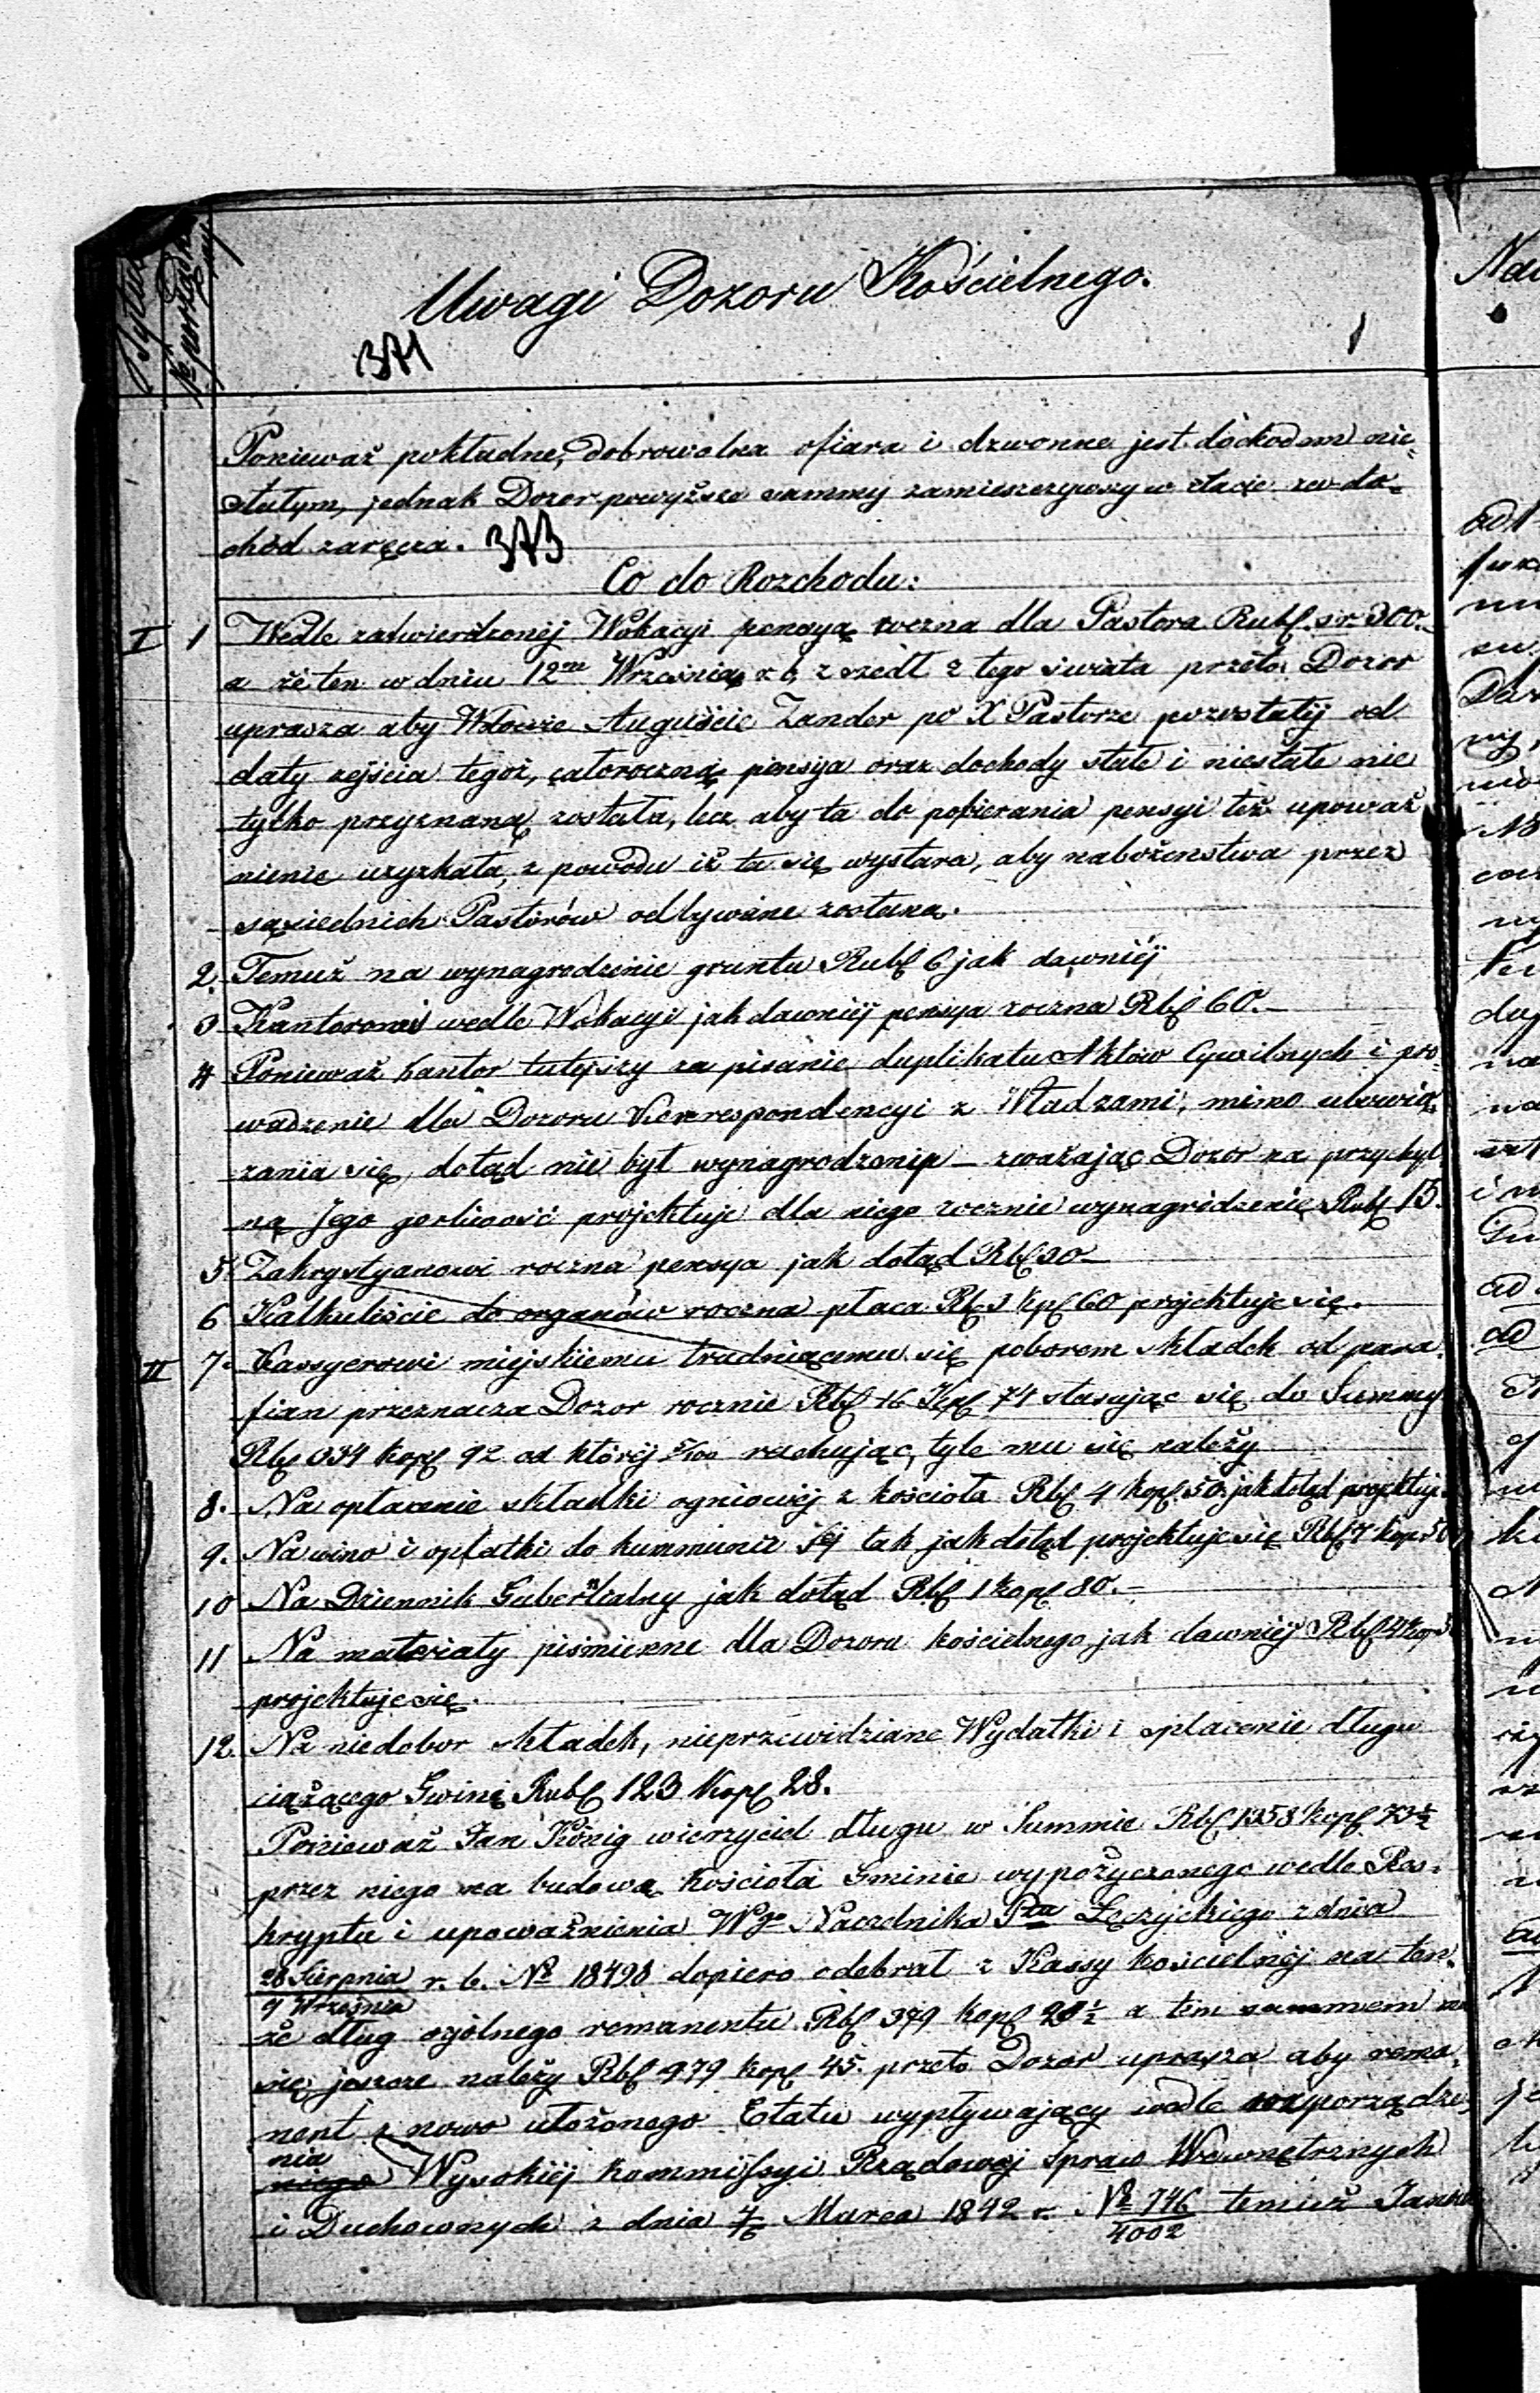 Tytuł
№ porządkowy
Uwagi Dozoru Kościelnego.
371
Poniewaź pokładne, dobrowolna ofiara i dzwonne jest dochodem nie=
stałym, jednak Dozor powyższe summy zamieszczywszy w etacie za do=
chód zaręcza. 373
Co do Rozchodu:
I 1 Wedle zatwierdzonéj Wokacyi pensya roczna dla Pastora Rubſ. sr. 300.
a że ten w dniu 12go Września r. b. zszedł z tego świata przeto Dozor
uprasza aby Wdowie Auguście Zander po X Pastorze pozostałéj od
daty zejścia tegoż, całoroczna pensya oraz dochody stałe i niestałe nie
tylko przyznaną została, lecz aby ta do pobierania pensyi też upoważ
nienie uzyskała, z powodu iż ta się wystara, aby nabożenstwa przez
sąsiednich Pastorów odbywane zostana.
2. Temuż na wynagrodzenie gruntu Rubſ 6 jak dawniéj
3 Kantorowi wedle Wokacyi jak dawniéj pensya roczna Rbſ 60.—
4 Poniewaź Kantor tutejszy za pisanie duplikatu Aktów Cywilnych i pro
wadzenie dla Dozoru Korrespondencyi z Władzami, mimo obowią
zania się, dotąd nie był wynagrodzonym — zważając Dozor na przychyl
ną Jego gorliwość projektuje dla niego rocznie wynagrodzenie Rubſ 15.
5. Zakrystyanowi roczna pensya jak dotąd Rbſ 30—
6 Kalkuliście do organów roczna płaca Rbſ 3 Kpſ 60 projektuje się.
II 7. Kassyerowi miejskiemu trudniącemu się poborem składek od para
fian przeznacza Dozor rocznie Rbſ 16 Kpſ 74 stosując się do Summy
Rbſ 334 kopſ 92 od któréj 5/100 rachując, tyle mu się należy
8. Na opłacenie składki ogniowéj z kościoła Rbſ 4 Kopſ 50. jak dotąd projektuje
9. Na wino i opłatki do kummunii Sej tak jak dotąd projektuje się Rbſ 7 kop 50
10 Na Dziennik Gubernialny jak dotąd Rbſ 1 kopſ 80.—
11 Na materiały piśmienne dla Dozoru kościelnego jak dawniéj Rbſ 4 kop
projektuje się.
12. Na niedobor składek, nieprzewidziane Wydatki i opłacenie długu
ciążącego Gminę Rubſ 123 Kopſ 28.
Poniewaź Jan König wierzyciel długu w Summie Rbſ 1358 kopſ 73½
przez niego na budowę kościoła Gminie wypożyczonego wedle Res=
kryptu i upoważnienia Wgo Naczelnika Ptu Łęczyckiego z dnia
28 Sierpnia r. b. № 18498 dopiero odebrał z Kassy kościelnéj na ten
9 Września
że dług ogólnego remanentu Rbſ 379 kopſ 28½ a tem sammem
się jeszcze należy Rbſ 979 kopſ 45. przeto Dozor uprasza aby rema
nent z nowo ułożonego Etatu wypływający wedle rozporządze
nia
Wysokiéj Kommiſsyi Rządowej Spraw Wewnętrznych
i Duchownych z dnia 4/6 Marca 1842 r. № 746/4002 temuż Janowi